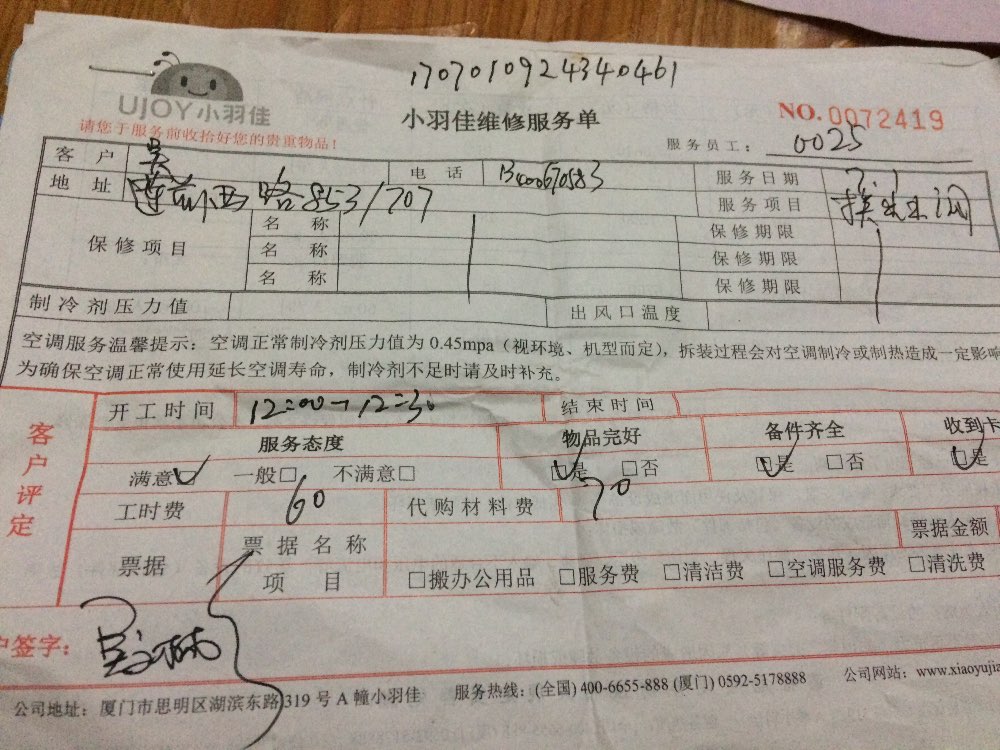 1707010924340461
UJOY小羽佳
小羽佳维修服务单
NO.0072419
请您于服务前收拾好您的贵重物品!
服务员工: 0025
客户 吴 电话 13400670583 服务日期 7.1
地址 莲前西路853/707 服务项目
保修项目 名称 保修期限
名称 保修期限
名称 保修期限
制冷剂压力值 出风口温度
空调服务温馨提示:空调正常制冷剂压力值为 0.45mpa(视环境、机型而定),拆装过程会对空调制冷或制热造成一定影响
为确保空调正常使用延长空调寿命,制冷剂不足时请及时补充。
客户评定
开工时间 12:00-12:30 结束时间
服务态度 物品完好 备件齐全 收到卡
满意 一般□ 不满意□ □是 □否 □是 □否 □是
工时费 60 代购材料费 70
票据 票据名称 票据金额
项目 □搬办公用品 □服务费 □清洁费 □空调服务费 □清洗费
户签字:
公司地址:厦门市思明区湖滨东路319号A幢小羽佳 服务热线:(全国) 400-6655-888 (厦门) 0592-5178888 公司网站:www.xiaoyujia